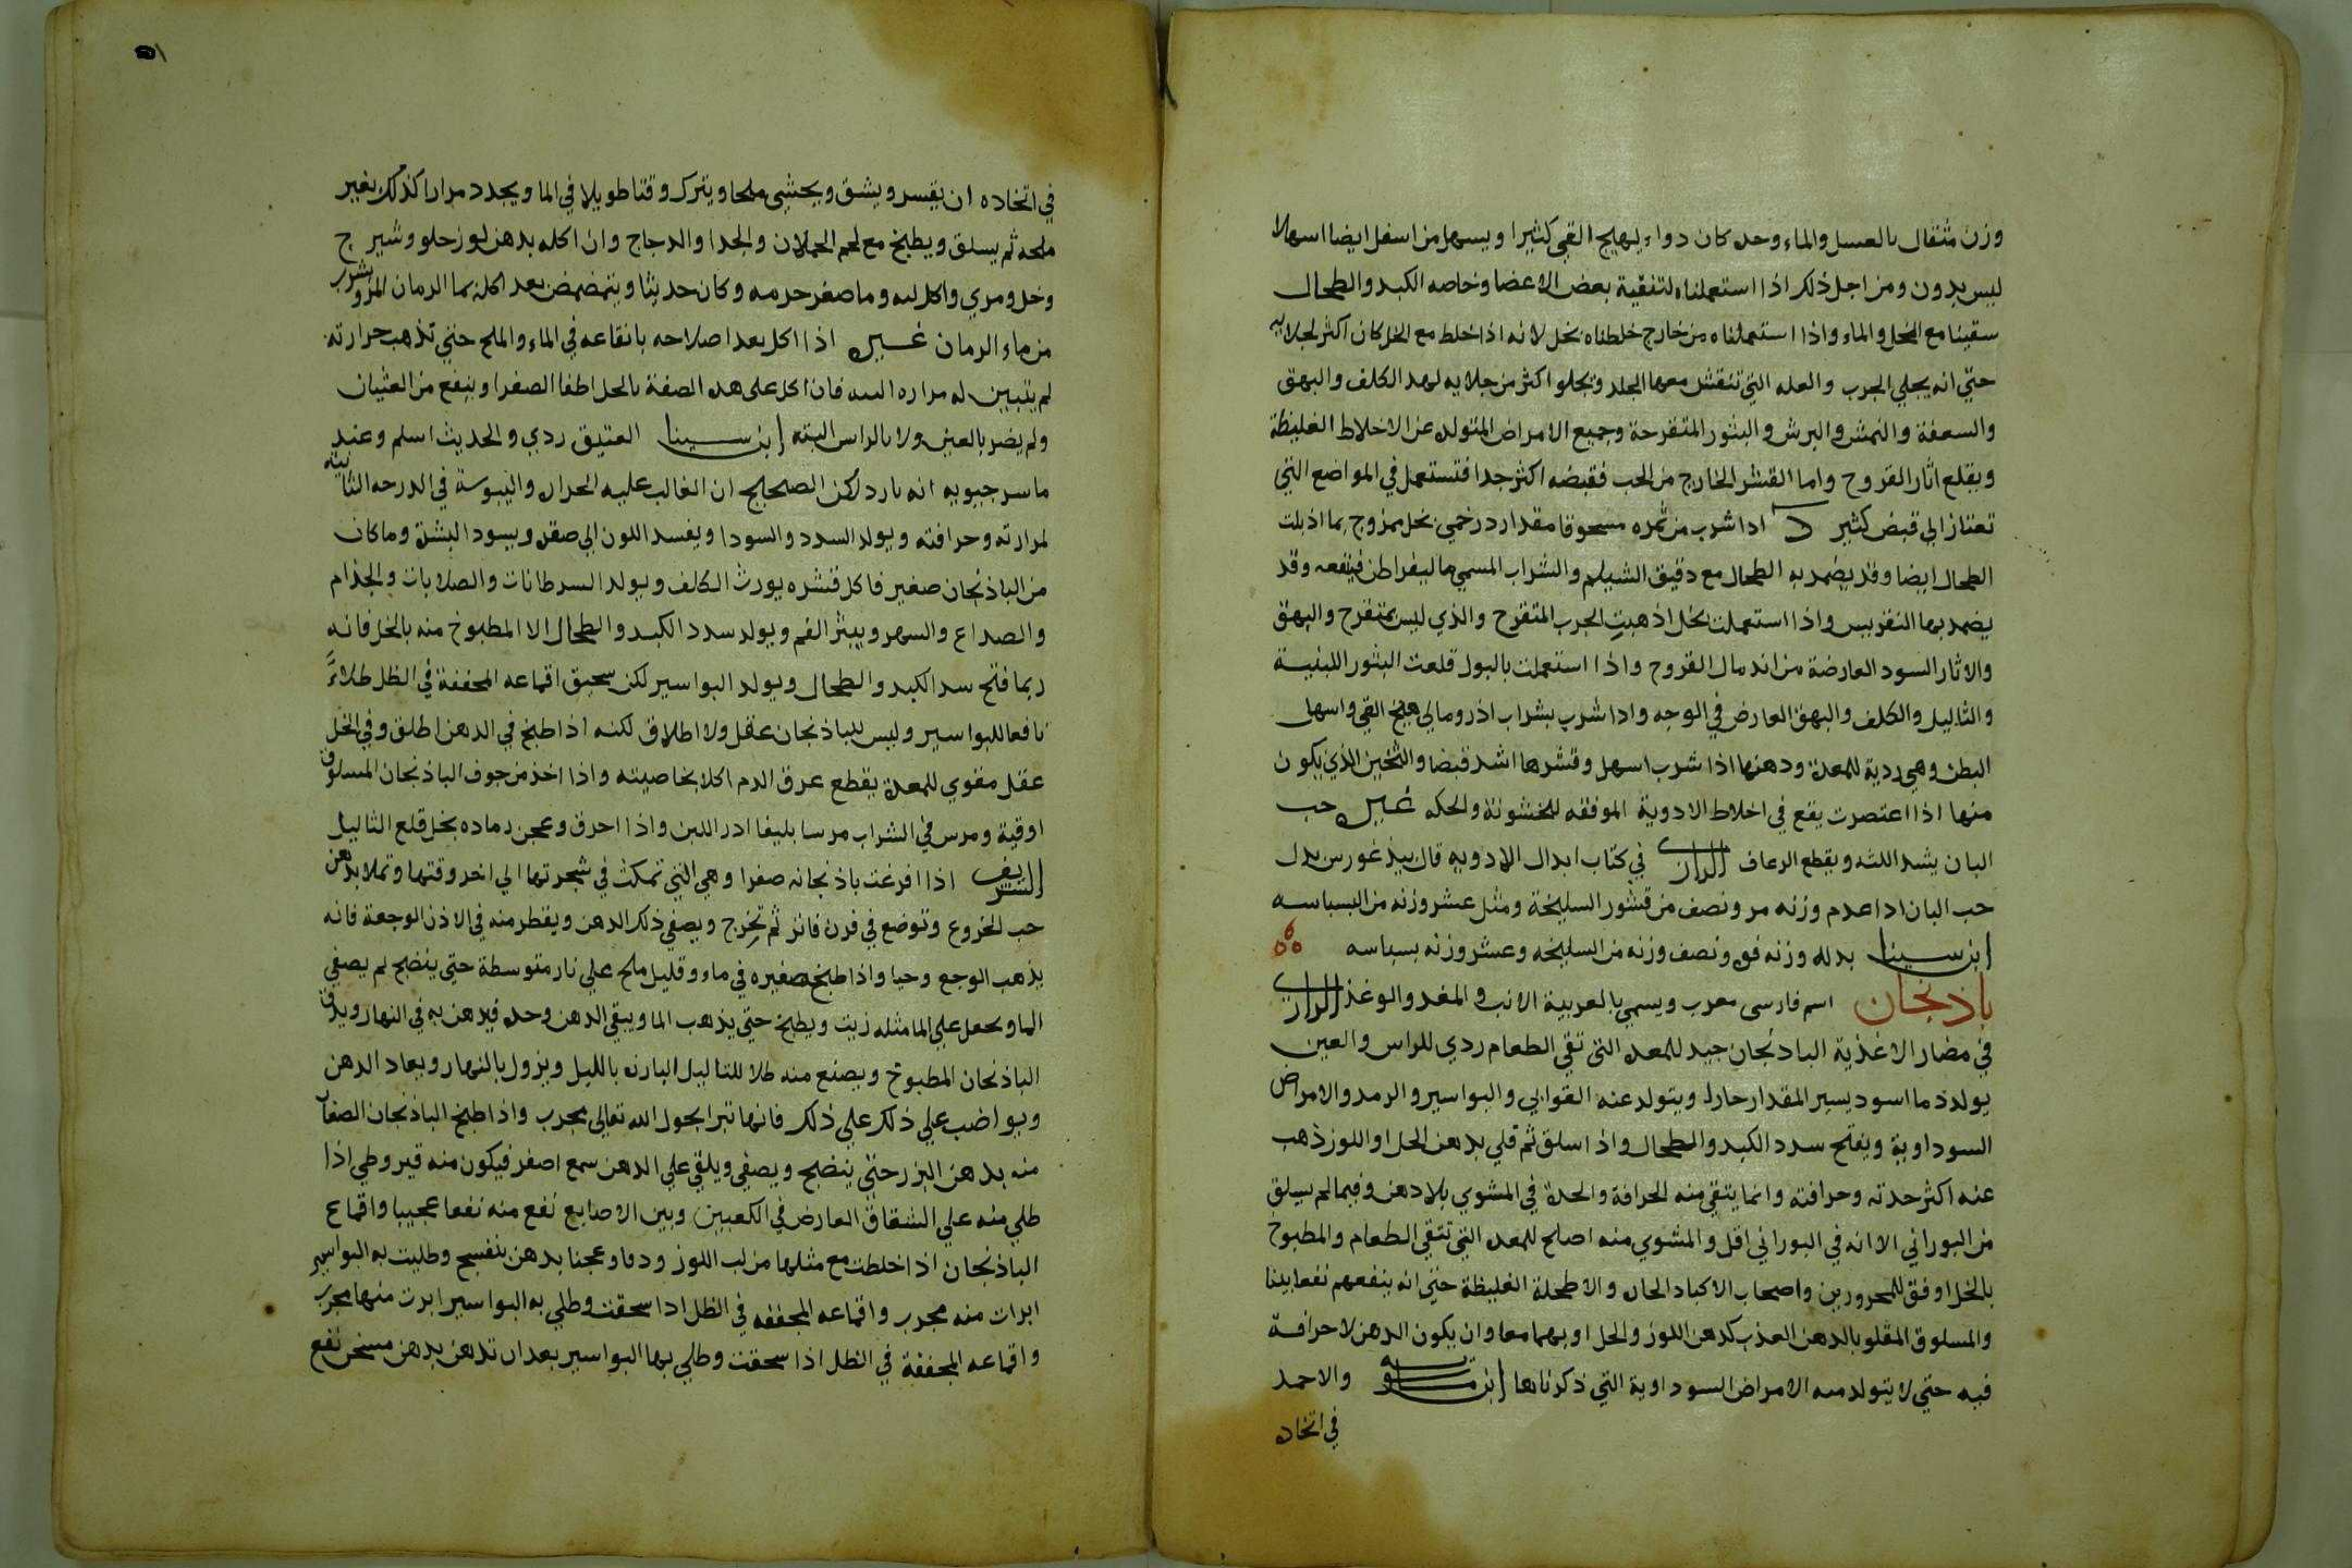 وزن مثقال بالعسل والماء وحده كان دواء يهيج القي كثيرا ويسهل من اسفل ايضا اسهالا
ليس بدون ومن اجل ذلك اذا استعملناه لتنقية بعض الاعضا وخاصه الكبد والطحال
سقينا مع الخل والماء واذا استعملناه من خارج خلطناه بخل لانه اذا خلط مع الخل كان اكثر لجلايه
حتي انه يجلي الجرب والعله التي تتقشر معها الجلد ويجلوا اكثر من جلايه لهد الكلف والبهق
والسعفة والنمش والبرش والبثور المتقرحة وجميع الامراض المتولده عن الاخلاط الغليظة
ويقلع اثار القروح واما القشر الخارج من الحب فقبضه اكثر جدا فتستعمل في المواضع التي
تعتاز الي قبض كثير د اذا شرب من ثمره مسحوقا مقدار درخمي بخل ممزوج بما اذبلت
الطحال ايضا وقد يضمد به الطحال مع دقيق الشيلم والشراب المسمي مالیقراطن فينفعه وقد
يضمد بها النقريس واذا استعملت بخل اذهبت الجرب المتقرح والذي ليس بمتقرح والبهق
والاثار السود العارضة من اندمال القروح واذا استعملت بالبول قلعت البثور اللبنية
والثاليل والكلف والبهق العارض في الوجه واذا شرب بشراب ادرومالي هيج القي واسهل
البطن وهي ردية للمعدة ودهنها اذا شرب اسهل وقشرها اشد قبضا والثخين الذي يكون
منها اذا اعتصرت يقع في اخلاط الادوية الموفقه للخشونة والحكه غيره حب
البان يشد اللثه ويقطع الرعاف الرازي في كتاب ابدال الادويه قال بيذغورس بدل
حب البان اذا عدم وزنه مر ونصف من قشور السليخة ومثل عشر وزنه من البسباسه
ابن سينا بدله وزنه فوه ونصف وزنه من السليخه وعشر وزنه بسباسه
باذنجان اسم فارسي معرب ويسمي بالعربية الانب والمغد والوغذ الرازي
في مضار الاغذية الباذنجان جيد للمعده التي تقي الطعام ردي للراس والعين
يولد دما اسود يسير المقدار حارا ويتولد عنه القوابي والبواسير والرمد والامراض
السوداوية ويفتح سدد الكبد والطحال واذا سلق ثم قلي بدهن الحل او اللوز ذهب
عنه اكثر حدته وحرافته وانما يتقي منه الحرافة والحدة في المشوي بلا دهن وفيما لم يسلق
من البوراني الا انه في البوراني اقل والمشوي منه اصلح للمعده التي تتقي الطعام والمطبوخ
بالخل اوفق للمحرورين واصحاب الاكباد الحاره والاطحلة الغليظة حتي انه ينفعهم نفعا بينا
والمسلوق المقلو بالدهن العذب كدهن اللوز والحل او بهما معا وان يكون الدهن لا حرافة
فيه حتي لا يتولد منه الامراض السوداوية التي ذكرناها ابن ماسويه والاحمد
في اتخاده
في اتخاده ان يقسر ويشق ويحشي ملحا ويترك وقتا طويلا في الما ويجدد مرارا كذلك بغير
ملحه ثم يسلق ويطبخ مع لحم الحملان والجدا والدجاج وان اكله بدهن لوز حلو وشيرج
وخل ومري واكل لبه وما صغر جرمه وكان حديثا ويتمضمض بعد اكله بما الرمان المز ويشرب
من ماء الرمان غيره اذا اكل بعد اصلاحه بانقاعه في الماء والملح حتي تذهب حرارته
لم يتبين له مراره البته فان اكل علي هذه الصفة بالخل اطفا الصفرا وينفع من الغثيان
ولم يضر بالعين ولا بالراس البته ابن سينا العتيق ردي والحديث اسلم وعند
ماسرجيويه انه بارد لكن الصحيح ان الغالب عليه الحراره واليبوسة في الدرجه الثانيه
لمرارته وحرافته ويولد السدد والسودا ويفسد اللون الي صفره ويسود البشرة وما كان
من الباذنجان صغير فاكل قشره يورث الكلف ويولد السرطانات والصلابات والجذام
والصداع والسهر ويبثر الفم ويولد سدد الكبد والطحال الا المطبوخ منه بالخل فانه
ربما فتح سدد الكبد والطحال ويولد البواسير لكن سحيق اقماعه المجففة في الظل طلاءً
نافعا للبواسير وليس للباذنجان عقل ولا اطلاق لكنه اذا طبخ في الدهن اطلق وفي الخل
عقل مقوي للمعدة يقطع عرق الدم اكلا بخاصيته واذا اخذ من جوف الباذنجان المسلوق
اوقية ومرس في الشراب مرسا بليغا ادر اللبن واذا احرق وعجن رماده بخل قلع الثاليل
الشريف اذا افرغت باذنجانه صفرا وهي التي تمكث في شجرتها الي اخر وقتها وتملا بدهن
حب الخروع وتوضع في فرن فاتر ثم تخرج ويصفي ذلك الدهن ويقطر منه في الاذن الوجعة فانه
يذهب الوجع وحيا واذا طبخ صغيره في ماء وقليل ملح علي نار متوسطة حتي ينضج ثم يصفي
الما ويجعل علي الما مثله زيت ويطبخ حتي يذهب الما ويبقي الدهن وحده فيدهن به في النهار ويدق
الباذنجان المطبوخ ويصنع منه طلا للثاليل البارزه بالليل ويزول بالنهار ويعاد الدهن
ويواضب علي ذلك علي ذلك فانها تبرا بحول الله تعالي مجرب واذا طبخ الباذنجان الصغار
منه بدهن البزر حتي ينضج ويصفي ويلقي علي الدهن سمع اصفر فيكون منه قيروطي اذا
طلي منه علي الشقاق العارض في الكعبين وبين الاصابع نفع منه نفعا عجيبا واقماع
الباذنجان اذا خلطت مع مثلها من لب اللوز ودقا وعجنا بدهن بنفسج وطليت به البواسير
ابرات منه مجرب واقماعه المجففه في الظل اذا سحقت وطلي به البواسير ابرت منها مجرب
واقماعه المجففة في الظل اذا سحقت وطلي بها البواسير بعد ان تدهن بدهن مسخن نفع